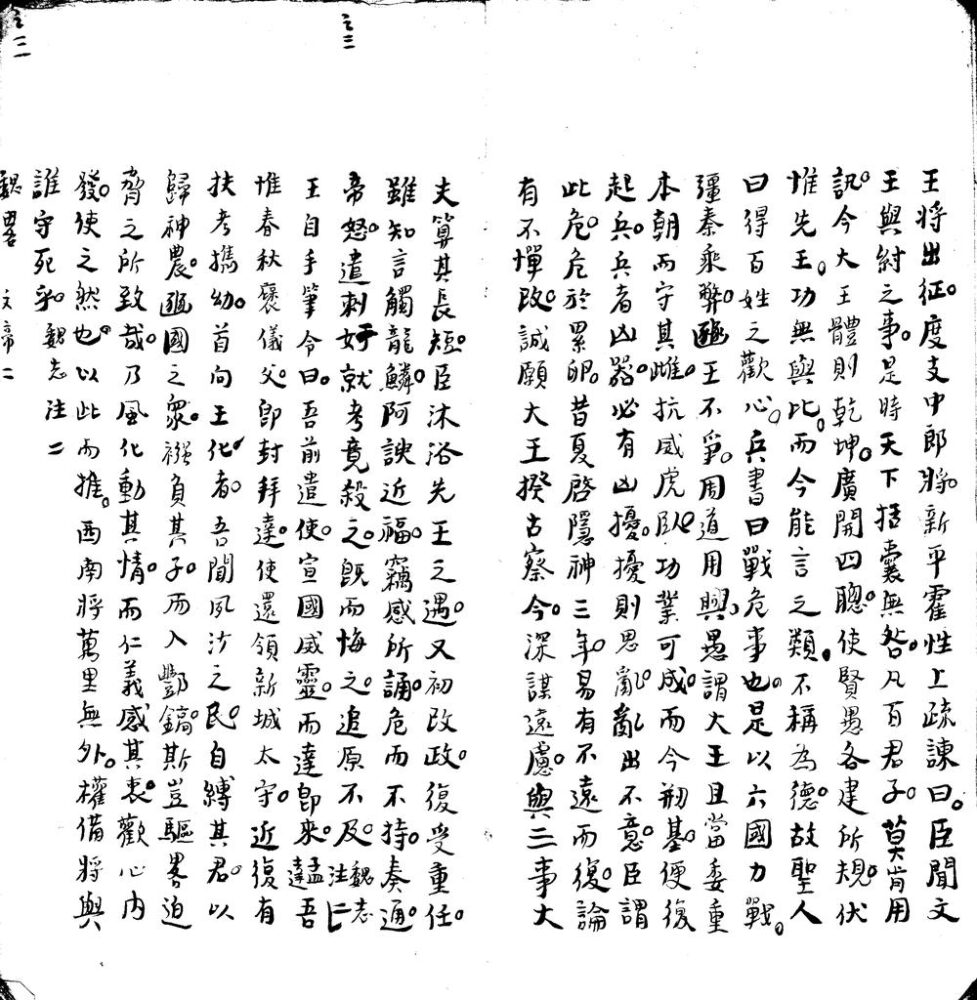 王將出征。度支中郎將。新平霍性上疏諫曰。臣聞文
王與紂之事。是時天下括囊無咎。凡百君子。莫肯用
訊。今大王體則乾坤。廣開四聰。使賢愚各建所規。伏
惟先王。功無與比。而今能言之類。不稱為德。故聖人
曰得百姓之歡心。兵書曰戰危事也。是以六國力戰。
彊秦乘弊。豳王不爭。周道用興。愚謂大王且當委重
本朝而守其雌。抗威虎臥。功業可成。而今刱基。便復
起兵。兵者凶器。必有凶擾。擾則思亂。亂出不意。臣謂
此危。危於累卵。昔夏啓隱神三年。易有不遠而復。論
有不憚改。誠願大王揆古察今。深謀遠慮。與三事大
夫算其長短。臣沐浴先王之遇。又初改政。復受重任。
雖知言觸龍鱗。阿諛近福。竊感所誦。危而不持。奏通。
帝怒。遣刺奸就考竟殺之。既而悔之。追原不及。魏志注二
王自手筆令曰。吾前遣使。宣國威靈。而達即來。達孟吾
惟春秋襃儀父。即封拜達。使還領新城太守。近復有
扶考攜幼。首向王化者。吾聞夙沙之民。自縛其君。以
歸神農。豳國之眾。襁負其子。而入酆鎬。斯豈驅畧迫
脅之所致哉。乃風化動其情。而仁義感其衷。歡心內
發。使之然也。以此而推。西南將萬里無外。權備將與
誰守死乎。魏志注二
魏畧 文帝二